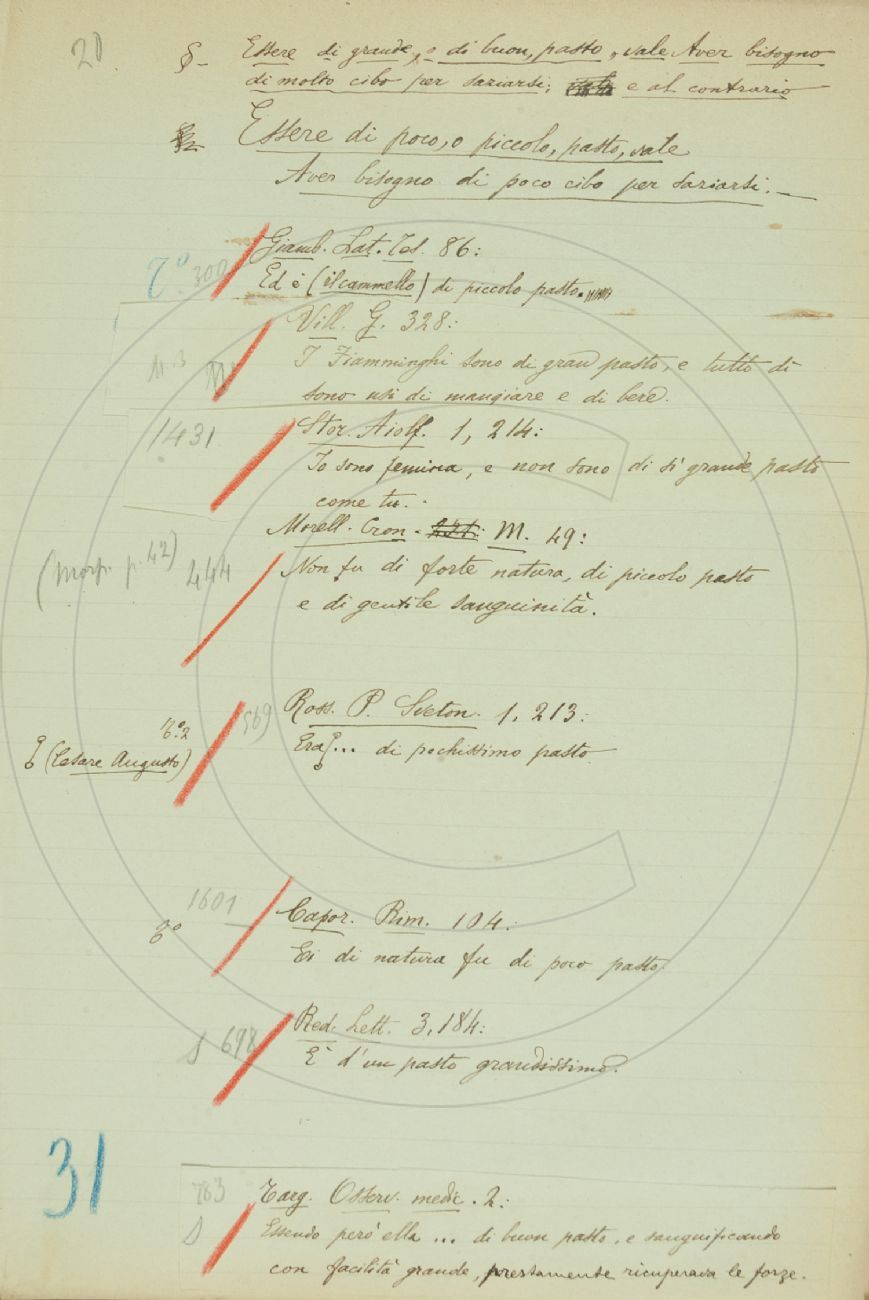 20
§ - Essere di grande, o di buon, pasto, vale Aver bisogno
di molto cibo per saziarsi; e al contrario
Essere di poco, o piccolo, pasto, vale
Aver bisogno di poco cibo per saziarsi. -
Giamb. Lat. Tes. 86:
To 300
Ed è (il cammello) di piccolo pasto.
Vill. G. 328:
I Fiamminghi sono di gran pasto, e tutto dì
sono usi di mangiare e di bere.
1431 Stor. Aiolf. 1, 214:
Io sono femina, e non sono di sì grande pasto
come tu. -
Morell. Cron. M. 49:
(Morp. p. 42) 244 Non fu di forte natura, di piccolo pasto
e di gentile sanguinità.
569 Ross. P. Sveton. 1, 213:
To. 2
(Cesare Augusto) Era ... di pochissimo pasto
1601 Capor. Rim. 104:
To
Ei di natura fu di poco pasto.
S 698 Red. Lett. 3, 184:
È d'un pasto grandissimo.
31
783 Targ. Osserv. medic. 2:
S Essendo però ella ... di buon pasto, e sanguificando
con facilità grande, prestamente ricuperava le forze.